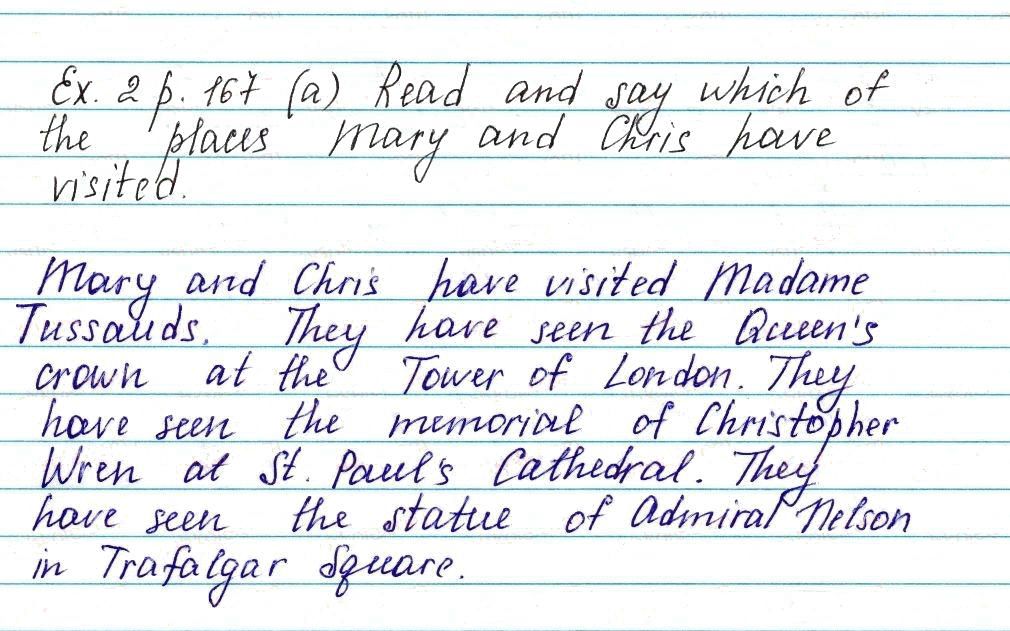 Ex. 2 p. 167 (a) Read and say which of
the places Mary and Chris have
visited.
Mary and Chris have visited Madame
Tussauds. They have seen the Queen's
crown at the Tower of London. They
have seen the memorial of Christopher
Wren at St. Paul's Cathedral. They
have seen the statue of Admiral Nelson
in Trafalgar Square.